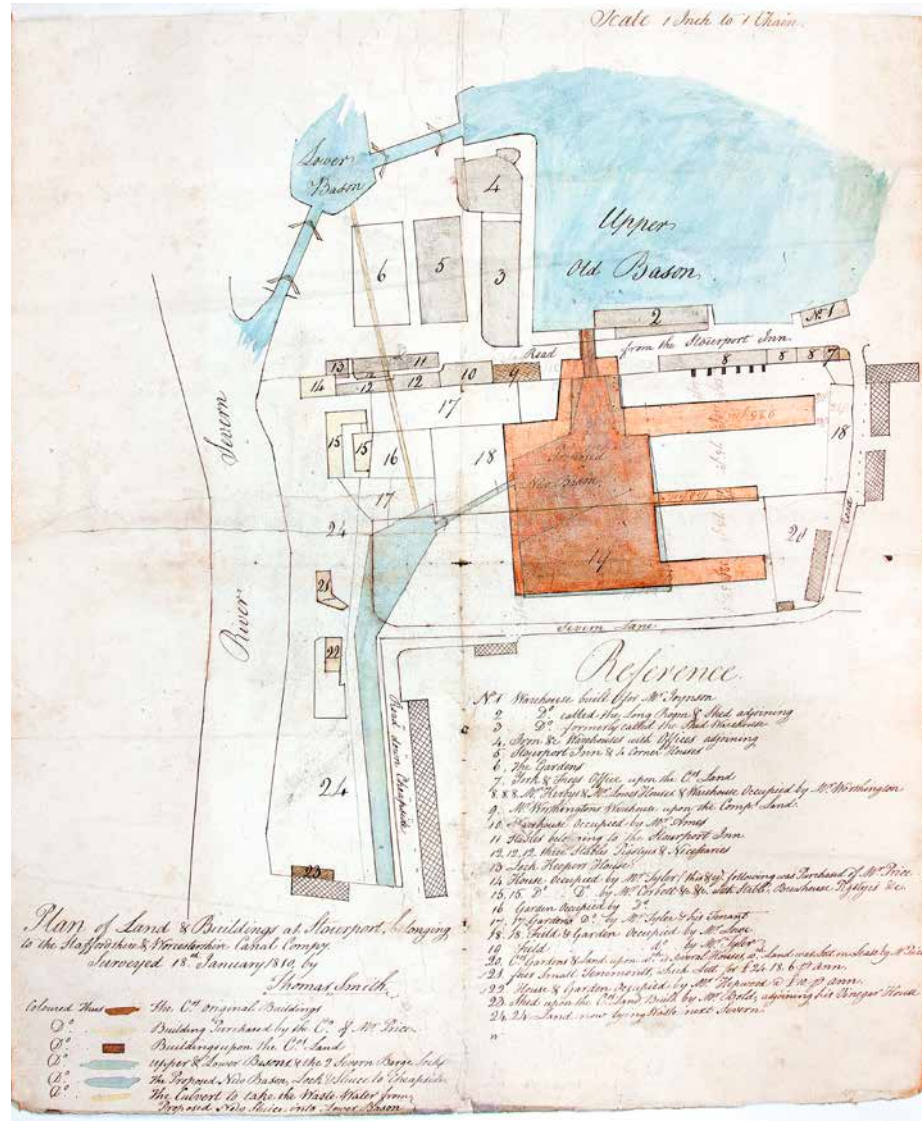 Scale 1 Inch to 1 Chain.
Lower
Bason
4
Upper
Old Bason
6
5
3
2
No. 1
Road
from the Stourport Inn.
13
11
14
12
12
10
9
8
8
8
7
17
15
15
16
18
18
Proposed
New Bason
17
24
19
20
Road
River Severn
21
22
Severn Lane
Road from Cheapside
24
23
Reference
No. 1 Warehouse built for Mr. Joynson
2 Do. called the Long Room & Shed adjoining
3 Do. formerly called the Warehouse
4. Iron &c Warehouses with Offices adjoining
5 Stourport Inn & 4 Corner Houses
6, The Gardens
7, Office upon the Cos. Land
8.8.8 Mr. & Mr. Houses & Warehouse Occupied by Mr. Worthington
9, Mr. Worthingtons Warehouse upon the Comps. Land.
10 Warehouse Occupied by Mr. Ames
11 Stables belonging to the Stourport Inn
12,12,12, three Stables Pigstyes & Necessaries
13 Lock Keepers House
14 House Occupied by Mr. Tyler following was Purchased of Mr. Price
15,15 Do. Do. by Mr. Corbett &c Stable, Brewhouse Pigstyes &c.
16 Garden Occupied by Do.
17,17 Gardens Do. by Mr. Tyler & his Tenant
18,18, Field & Garden Occupied by Mr.
19 Field do. by Mr. Tyler
20. Cos. Gardens & Land upon several Houses Land was Let on Lease by Mr. Price
21 four Small Tenements, Let for £24.18.6 P ann.
22 House & Garden Occupied by Mr. Hepwood P ann.
23 Shed upon the Cos. Land Built by Mr. Bold, adjoining his Vinegar House
24,24 Land now lying next Severn.
Plan of Land & Buildings at Stourport, belonging
to the Staffordshire & Worcestershire Canal Compy.
Surveyed 18th January 1810, by
Thomas Smith
Coloured Thus The Cos. original Buildings
Do. Building Purchased by the Co. of Mr. Price.
Do. Buildings upon the Cos. Land
Do. upper & Lower Basons & the 2 Severn Barge Locks
Do. the Proposed New Bason, Lock & Sluce to Cheapside
Do. The Culvert to take the Waste Water from
Proposed New Sluice into Lower Bason